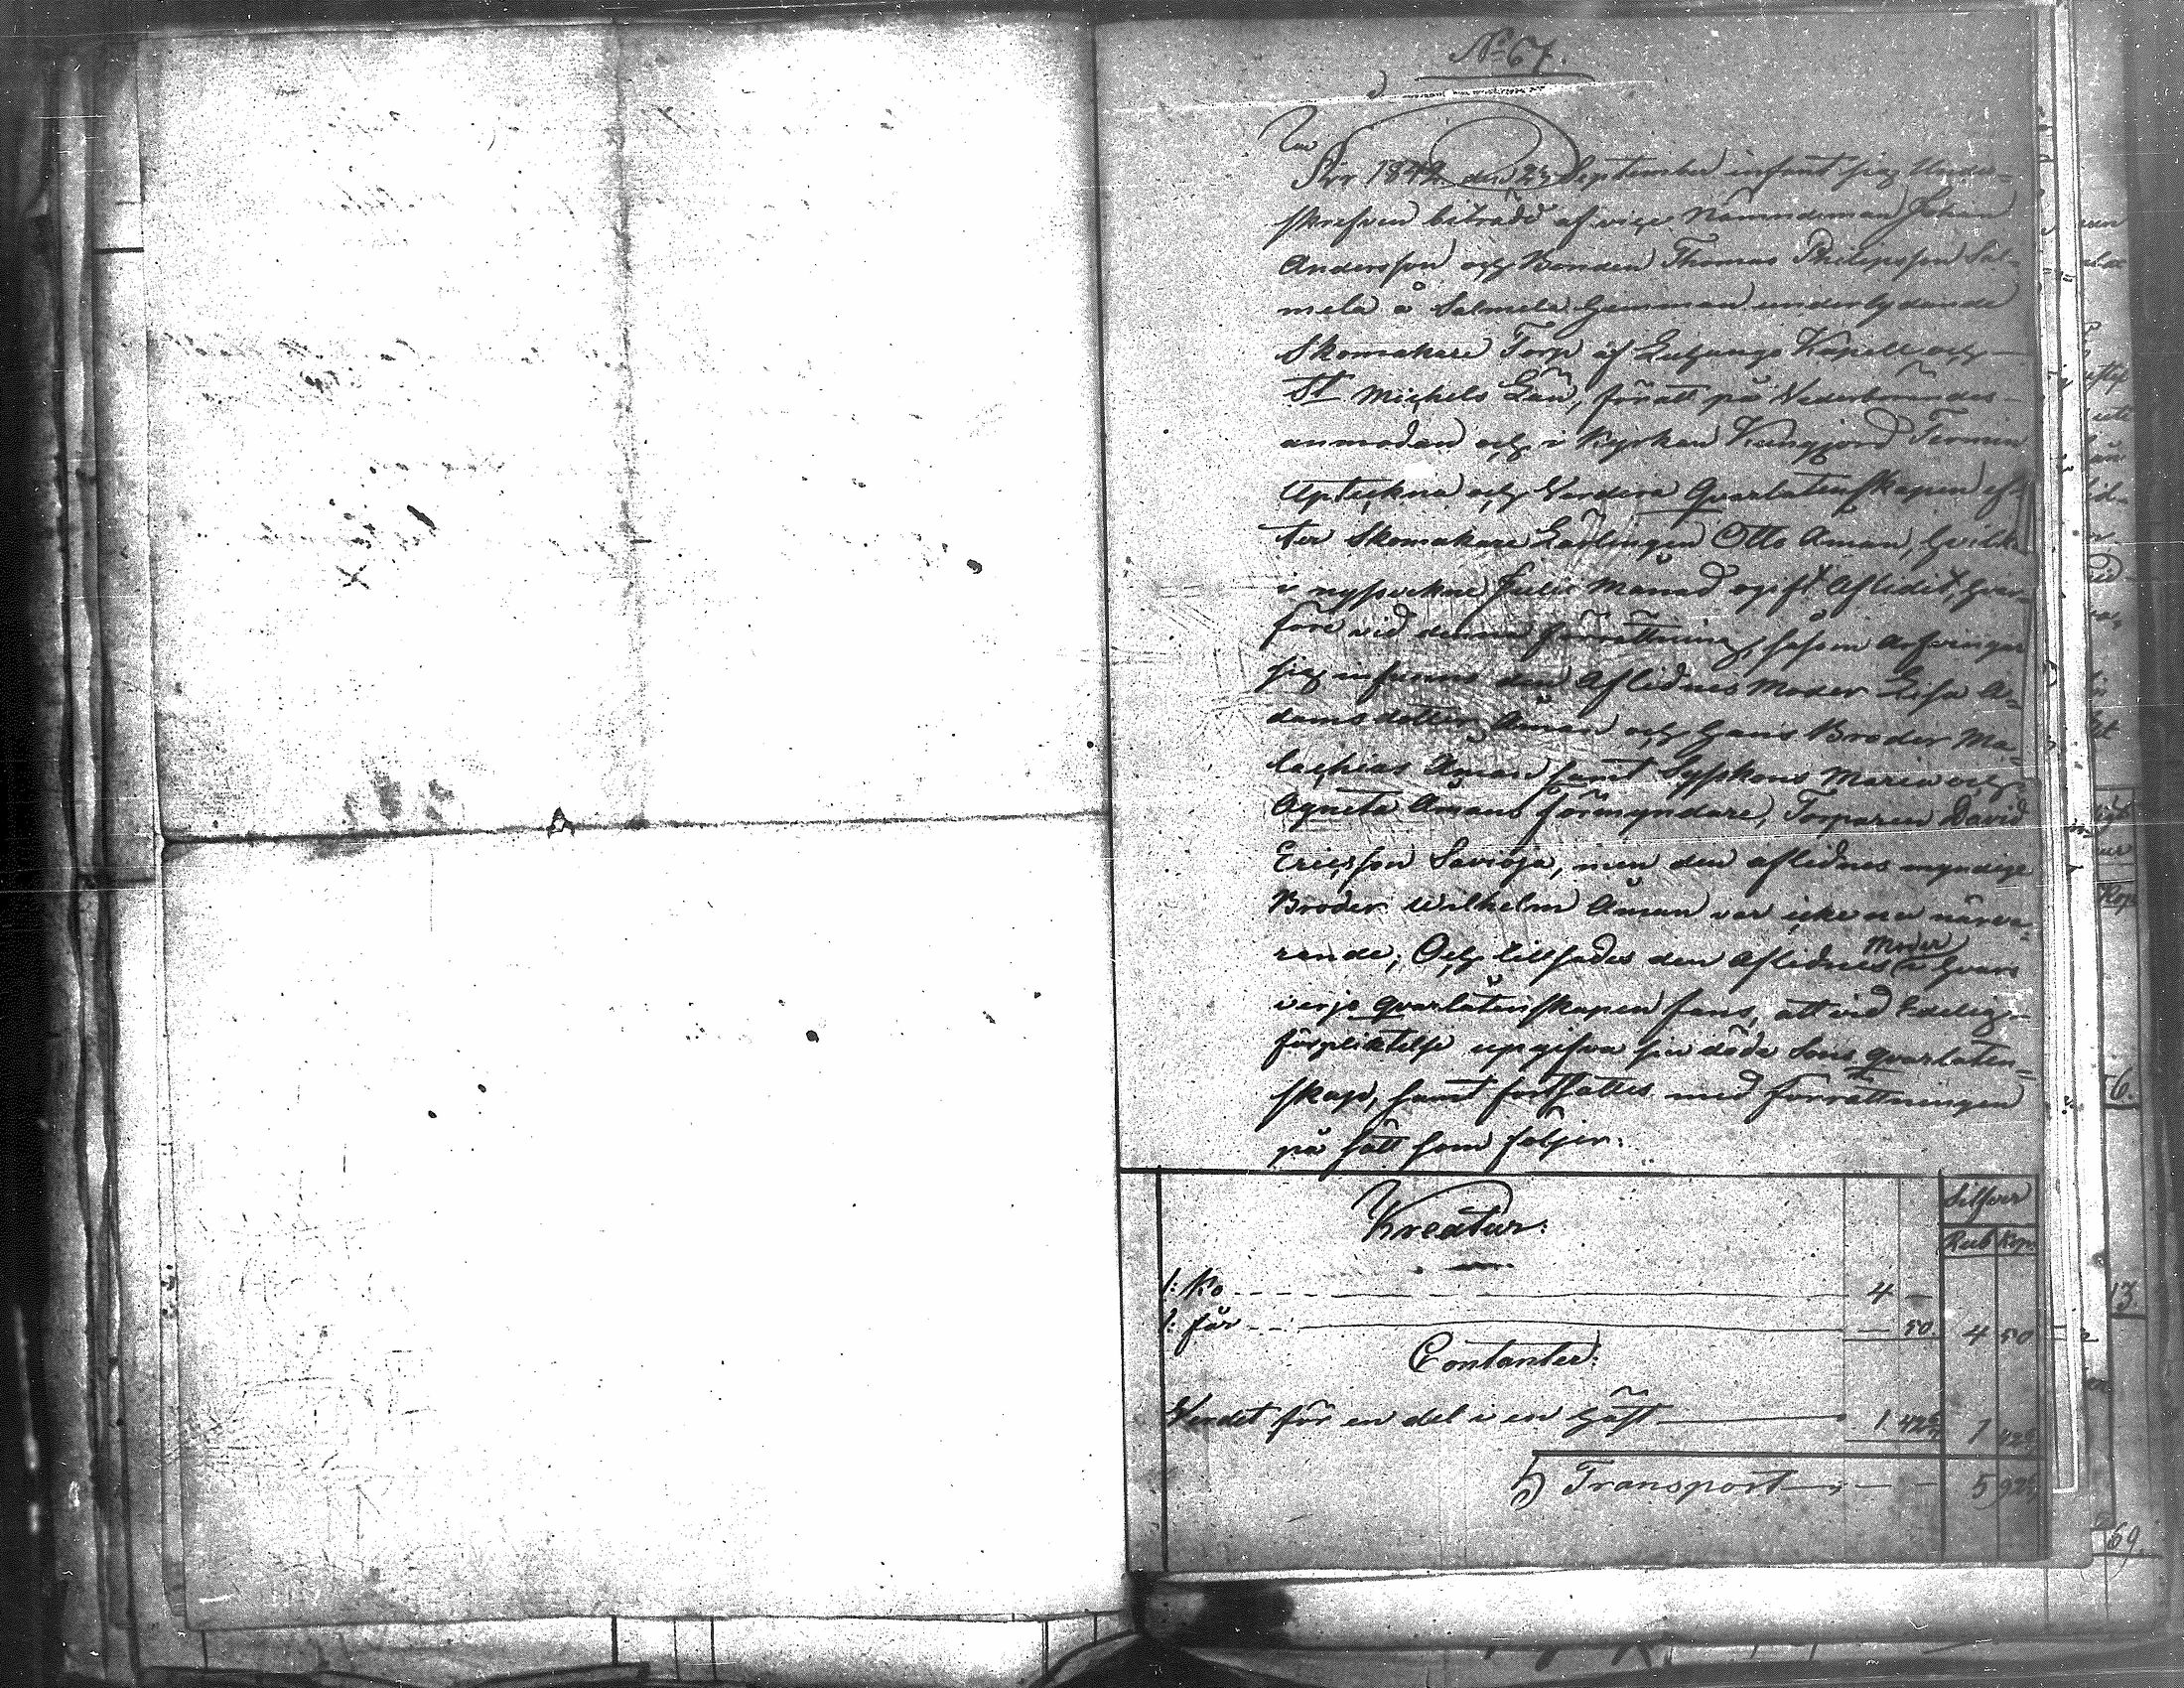 No 67.
År 1842 den September infant sig Under-
skrefven biträdd af vice Nämndeman Johan
Andersson och Bonden Thomas Philipsson Sal-
mela å Salmela hemman underlydande
Skomakare Torp af Kapell och
St Michels Län, för att på Vederbörandes
anmodan och i Kyrkan Kungjord Termin
Upteckna och Verdera Qvarlåtenskapen ef-
ter Skomakare Lärlingen Otto Åman, hvilken
i Julii Månad ogift Aflidit, hvar-
före vid denna förrättning, såsom Arfvingar
sig infunno den Aflidnes Moder Lisa A-
damsdotter Åman och hans Broder Ma-
lachias Åman samt Syskons Maria och
Agneta Åmans förmyndare, Torparen David
Ericsson Savioja, men den aflidnes myndige
Broder Wilhelm Åman var icke nu närva-
rande; Och tillsades den Aflidnes Moder i hvars
värjo qvarlåtenskapen fans, att vid Edelig
förpliktelse upgifva sin döde Sons qvarlåten-
skap, samt fortsattes med Förrättningen
på sätt som följer.
Silfver
Kreatur:
Rub Kop.
1: Ko 4 —
1: får — 50 4 50
Contanter:
Værdet för en del i en häst 1 42 1 42
Transport 5 92